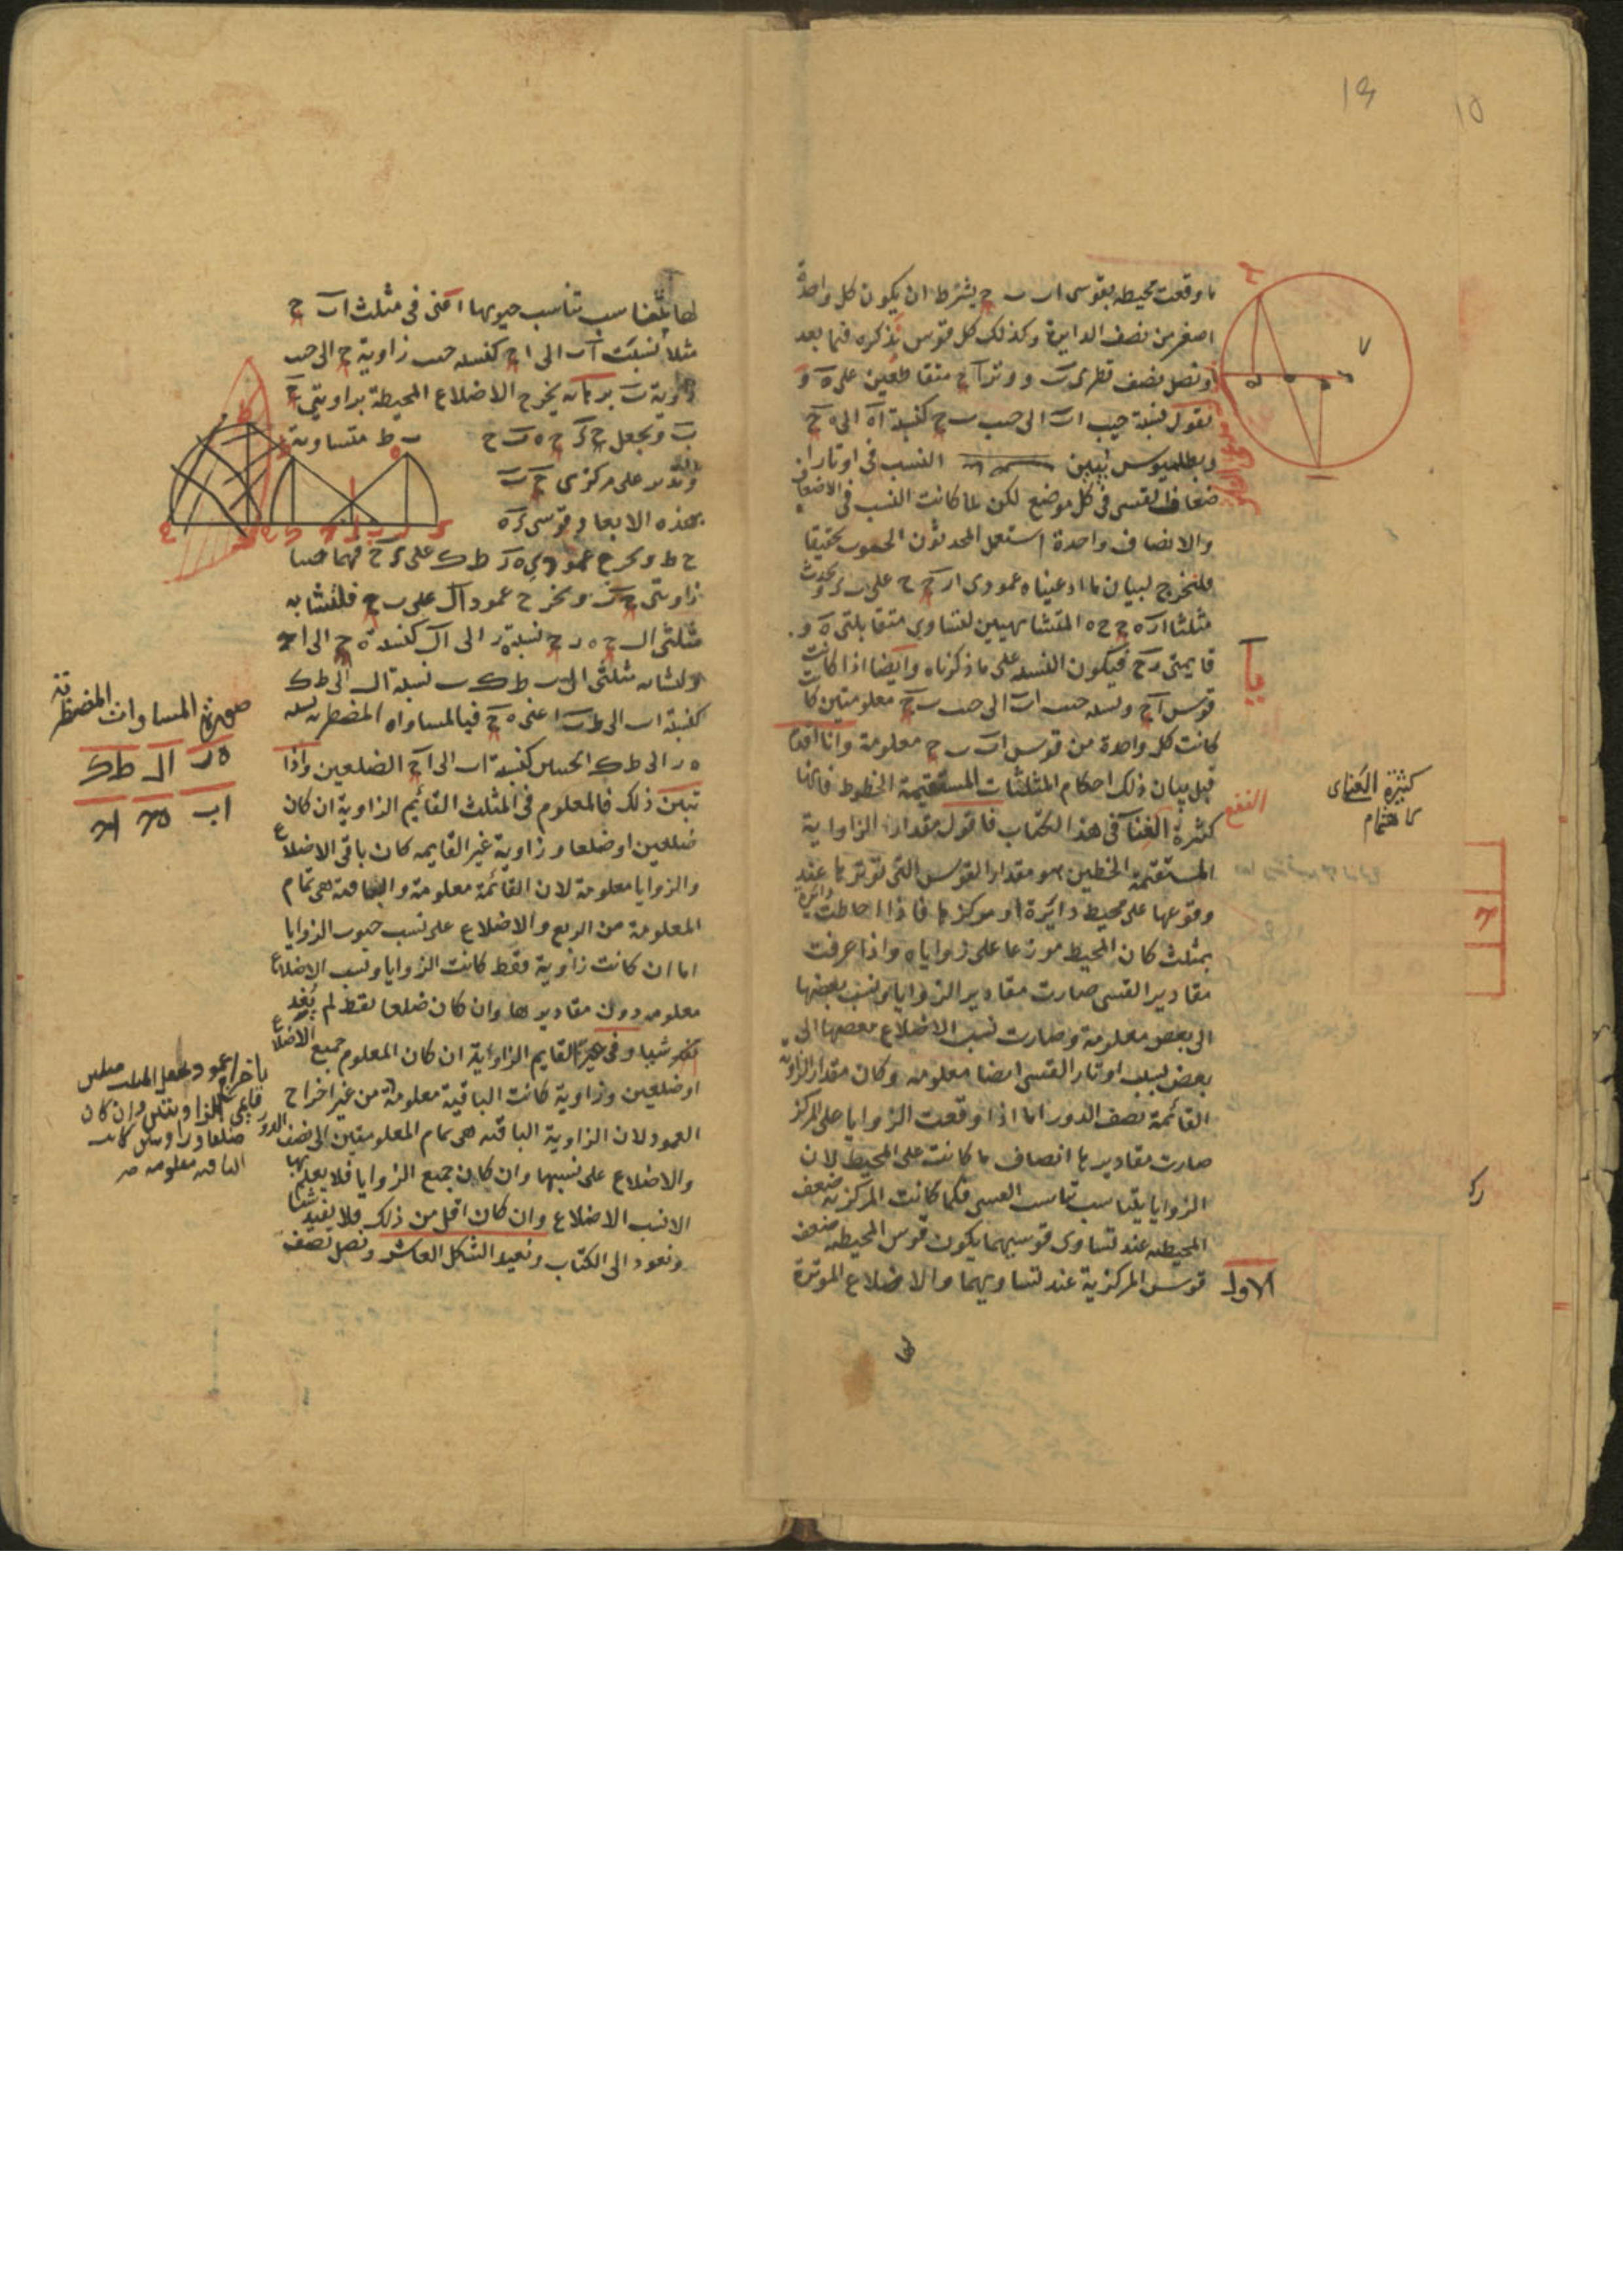 ما وقعت محيطه بقوسى اب ب ج يشترط ان يكون كل واحدة
اصغر من نصف الدايرة وكذلك كل قوس نذكره فيما بعد
ونصل نصف قطرى ب و وتر ا ج متقاطعين على ه و
نقول نسبة جيب اب الى جيب ب ج كنسبة اه الى ه ج
وبطلميوس يبين النسب فى اوتار
اضعاف القسى فى كل موضع لكن لما كانت النسب فى الاضعاف
والانصاف واحدة استعمل المحدثون الجيوب تخفيفا
فلنخرج لبيان ما ادعيناه عمودى ا ر ج ح على ب و يحدث
مثلثا ا ر ه ج ح ه المتشابهين لتساوى متقابلتى ه و
قايمتى ر ح فيكون النسبة على ما ذكرناه وايضا اذا كانت
قوس ا ج ونسبة جيب اب الى جيب ب ج معلومتين كا
كانت كل واحدة من قوسى اب ب ج معلومة وانا اقدم
قبل بيان ذلك احكام المثلثات المستقيمة الخطوط فانها
كثيرة الغناء فى هذا الكتاب فاقول مقدار الزاوية
المستقيمة الخطين هو مقدار القوس التى توترها عند
وقوعها على محيط دايرة او مركزها فاذا احاطت دائرة
بمثلث كان المحيط موزعا على زواياه واذا عرفت
مقادير القسى صارت مقادير الزوايا ونسب بعضها
الى بعض معلومة وصارت نسب الاضلاع بعضها الى
بعض نسب اوتار القسى ايضا معلومة وكان مقدار الزاوية
القائمة نصف الدور اما اذا وقعت الزوايا على المركز
صارت مقاديرها انصاف ما كانت على المحيط لان
الزوايا يتناسب تناسب القسى فكما كانت المركزية ضعف
المحيطية عند تساوى قوسيهما يكون قوس المحيطية ضعف
قوس المركزية عند تساويهما والاضلاع الموترة
الاول
كثيرة الغناء اى
الاهتمام
النفع
لها يتناسب تناسب جيوبها اعنى فى مثلث اب ج
مثلا نسبة اب الى ا ج كنسبة جيب زاوية ج الى جيب
زاوية ب برهانه يخرج الاضلاع المحيطة بزاويتى ج
ب ونجعل ج ه ب ح ب ط متساوية
وندير على مركزى ج ب
بهذه الابعاد قوسى ه
ح ط ونخرج عمودى ه ر ط ك على ب ج فهما جيبا
زاويتى ج ب ونخرج عمود ا ل على ب ج فلتشابه
مثلثى ا ل ج ه ر ج نسبة ه ر الى ا ل كنسبة ه ج الى ا ج
ولتشابه مثلثى ا ل ب ط ك ب نسبة ا ل الى ط ك
كنسبة اب الى ط ب اعنى ه ج فبالمساواه المضطربه نسبة
ه ر الى ط ك الجيبين كنسبة اب الى ا ج الضلعين واذا
تبين ذلك فالمعلوم فى المثلث القائم الزاوية ان كان
ضلعين او ضلعا وزاوية غير القايمه كان باقى الاضلاع
والزوايا معلومة لان القائمة معلومة والباقية هى تمام
المعلومة من الربع والاضلاع على نسب جيوب الزوايا
اما ان كانت زاوية فقط كانت الزوايا ونسب الاضلاع
معلومه دون مقاديرها وان كان ضلعا فقط لم يفد
شيا وفى غير القايم الزاوية ان كان المعلوم جميع الاضلاع
او ضلعين وزاوية كانت الباقية معلومة من غير اخراج
العمود لان الزاوية الباقيه هى تمام المعلومتين الى نصف الدور
والاضلاع على نسبها وان كان جميع الزوايا فلا يعلم بها
الا نسب الاضلاع وان كان اقل من ذلك فلا يفيد شيئا
ونعود الى الكتاب ونعيد الشكل العاشر ونصل نصف
صورة المساواة المضطربة
ه ر ا ل ط ك
ا ب ه ج ا ج
باخراج عمود يجعل المثلث مثلثين
قايمى الزاويتين وان كان
ضلعا وزاويتين كانت
الباقيه معلومه